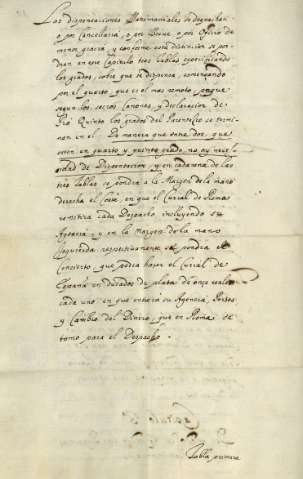 Las dispensaciones Matrimoniales se despachan
o por Cancelaria, o por Breve o por Oficio de
menos gracia, y conforme esta distincion se pon-
dran en este Capitulo tres tablas especificando
los grados, sobre que se dispensa, comenzando
por el quarto, que es el mas remoto, porque
segun los sacros Canones, y declaracion de
Pio Quinto los grados del Parentesco se termi-
nan en el. De manera que sean dos, que
esten en quarto y quinto grado, no ay neces-
sidad de Dispensacion, y en cada una de las
tres tablas se pondra a la Margen de la mano
derecha el Coste, en que el Curial de Roma
remitira cada Despacho incluyendo su
Agencia, y en la Margen de la mano
izquierda respectivamente se pondra el
Concierto, que podra hacer el Curial de
España en ducados de plata de once reales
cada uno en que entrarà su Agencia, Portes
y Cambio del Dinero, que en Roma se
tomo para el Despacho.
Tabla primera